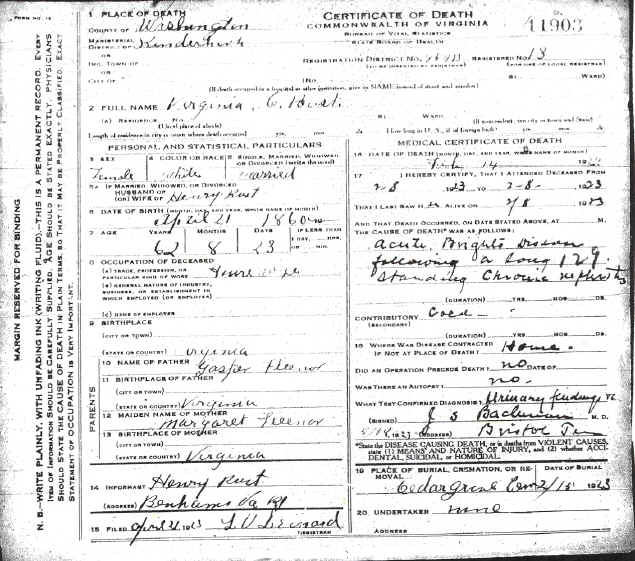 FORM NO. 12
MARGIN RESERVED FOR BINDING
N. B.—WRITE PLAINLY, WITH UNFADING INK (WRITING FLUID).—THIS IS A PERMANENT RECORD. EVERY
ITEM OF INFORMATION SHOULD BE CAREFULLY SUPPLIED. AGE SHOULD BE STATED EXACTLY. PHYSICIANS
SHOULD STATE THE CAUSE OF DEATH IN PLAIN TERMS, SO THAT IT MAY BE PROPERLY CLASSIFIED. EXACT
STATEMENT OF OCCUPATION IS VERY IMPORTANT.
1 PLACE OF DEATH
COUNTY OF Washington
MAGISTERIAL
DISTRICT OF Kinderhook
OR
INC. TOWN OF
OR
CITY OF
CERTIFICATE OF DEATH
COMMONWEALTH OF VIRGINIA
BUREAU OF VITAL STATISTICS
STATE BOARD OF HEALTH
11903
REGISTRATION DISTRICT NO.
REGISTERED NO. 13
(TO BE INSERTED BY REGISTRAR)
(FOR USE OF LOCAL REGISTRAR)
(No. St. WARD)
(If death occurred in a hospital or other institution, give its NAME instead of street and number)
2 FULL NAME Virginia C.
(A) RESIDENCE No. St. WARD
(Usual place of abode)
(If nonresident, give city or town and State)
Length of residence in city or town where death occurred yrs. mos. ds. How long in U. S., if of foreign birth? yrs. mos. ds.
PERSONAL AND STATISTICAL PARTICULARS
3 SEX
Female
4 COLOR OR RACE
White
5 SINGLE, MARRIED, WIDOWED
OR DIVORCED (write the word)
Married
5A IF MARRIED, WIDOWED, OR DIVORCED
HUSBAND OF
(OR) WIFE OF Henry
6 DATE OF BIRTH (MONTH, DAY, AND YEAR, WRITE NAME OF MONTH)
April 21 1860
7 AGE YEARS MONTHS DAYS
62 8 23
IF LESS THAN
1 DAY, HRS.
OR MIN.
8 OCCUPATION OF DECEASED
(A) TRADE, PROFESSION, OR
PARTICULAR KIND OF WORK
(B) GENERAL NATURE OF INDUSTRY,
BUSINESS, OR ESTABLISHMENT IN
WHICH EMPLOYED (OR EMPLOYER)
(C) NAME OF EMPLOYER
9 BIRTHPLACE
(CITY OR TOWN)
(STATE OR COUNTRY) Virginia
PARENTS
10 NAME OF FATHER Gasper Fleenor
11 BIRTHPLACE OF FATHER
(CITY OR TOWN)
(STATE OR COUNTRY) Virginia
12 MAIDEN NAME OF MOTHER
Margaret Fleenor
13 BIRTHPLACE OF MOTHER
(CITY OR TOWN)
(STATE OR COUNTRY) Virginia
14
INFORMANT Henry
(ADDRESS) Benhams Va
15 FILED April 21 1923
REGISTRAR
MEDICAL CERTIFICATE OF DEATH
16 DATE OF DEATH (MONTH, DAY, AND YEAR, WRITE NAME OF MONTH)
14 19
17 I HEREBY CERTIFY, THAT I ATTENDED DECEASED FROM
2-8 1923 TO 2-8- 1923
THAT I LAST SAW H ALIVE ON 2/8 1923
AND THAT DEATH OCCURRED, ON DATE STATED ABOVE, AT M.
THE CAUSE OF DEATH* WAS AS FOLLOWS:
Acute Brights Disease
following a long
standing Chronic nephritis
(DURATION) YRS. MOS. DS.
CONTRIBUTORY Cold
(SECONDARY)
(DURATION) YRS. MOS. DS.
18 WHERE WAS DISEASE CONTRACTED
IF NOT AT PLACE OF DEATH? Home
DID AN OPERATION PRECEDE DEATH? no DATE OF
WAS THERE AN AUTOPSY? no.
WHAT TEST CONFIRMED DIAGNOSIS? Urinary
(SIGNED) J S Bachman M. D.
1923 Bristol
*State the DISEASE CAUSING DEATH, or in deaths from VIOLENT CAUSES,
state (1) MEANS AND NATURE OF INJURY, and (2) whether ACCI-
DENTAL, SUICIDAL, or HOMICIDAL.
19 PLACE OF BURIAL, CREMATION, OR RE-
MOVAL
DATE OF BURIAL
Cedar Grove 2/15 1923
20 UNDERTAKER none
ADDRESS